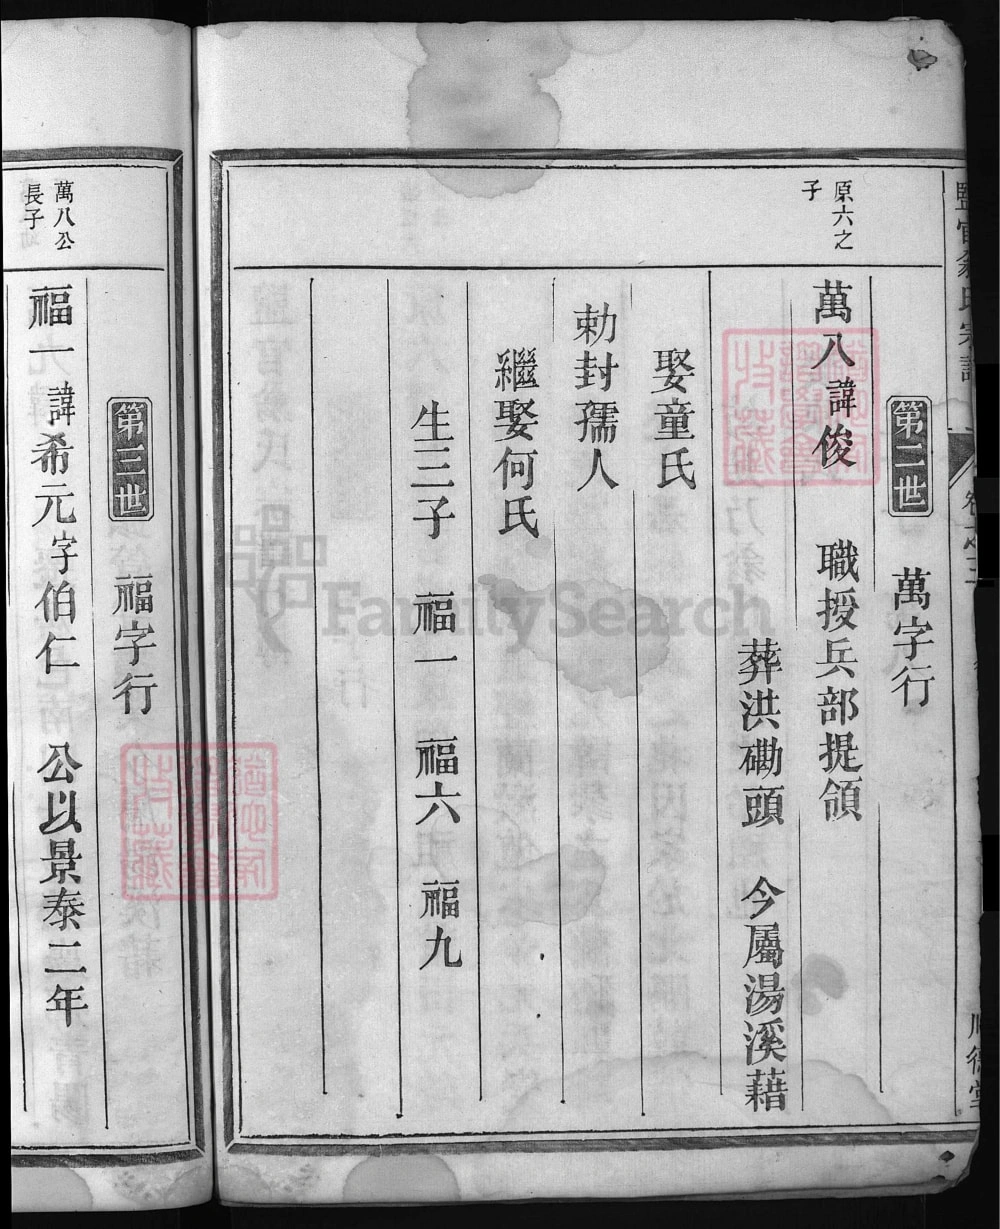 第二世　萬字行
原六之
子
萬八諱俊　職授兵部提領
葬洪磡頭　今屬湯溪藉
娶童氏
勅封孺人
繼娶何氏
生三子　福一　福六　福九
第三世　福字行
萬八公
長子
福一諱希元字伯仁　公以景泰二年
FamilySearch